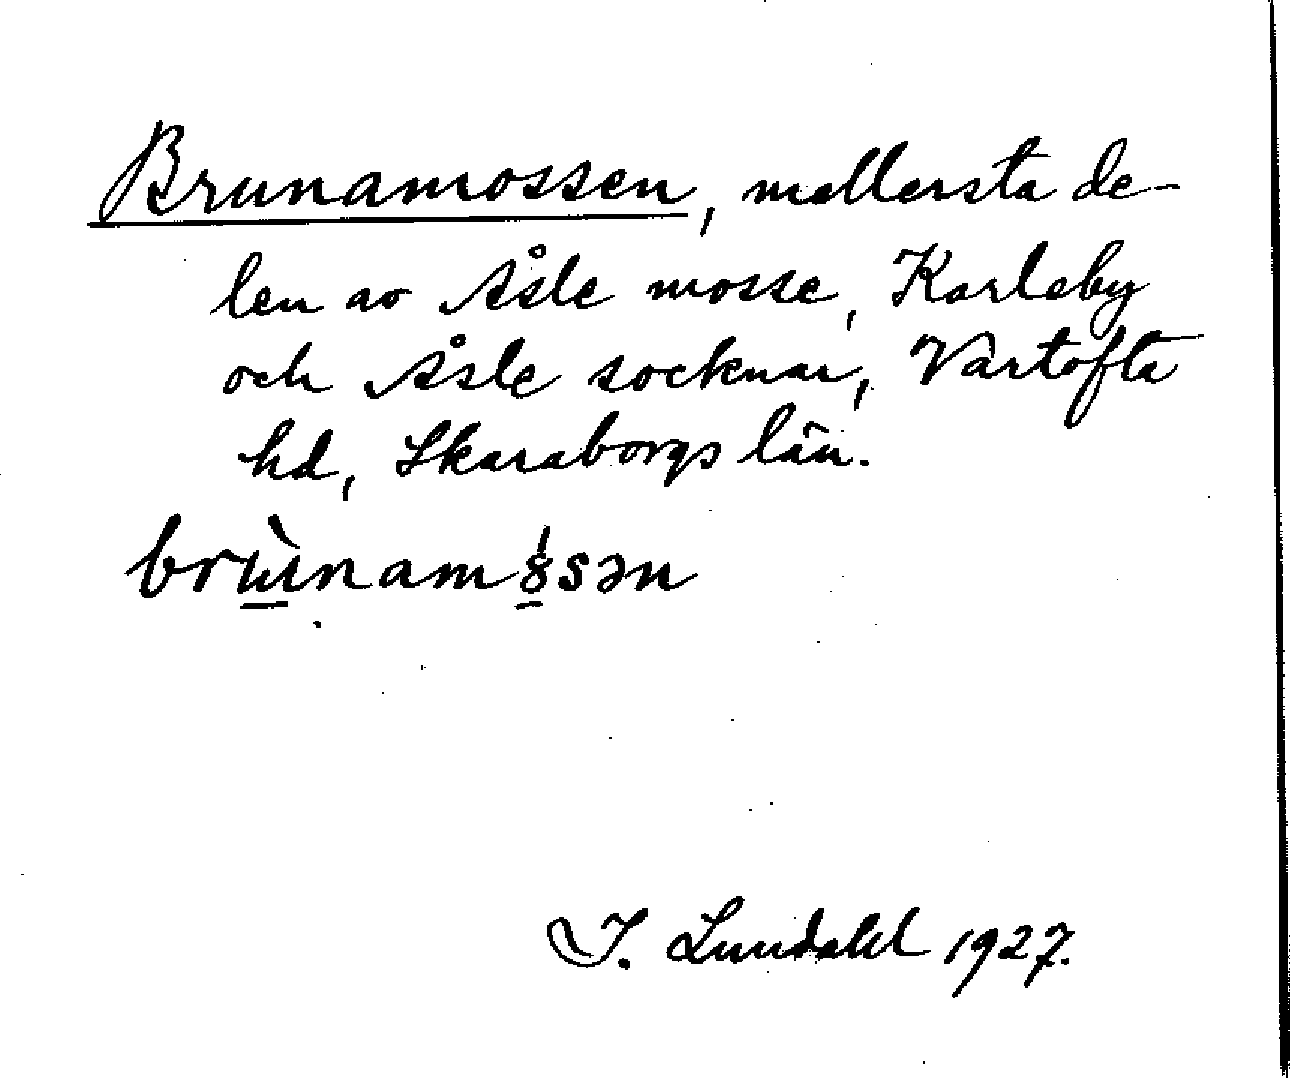 Brunamossen, mellersta de-
len av Åsle mosse, Karleby
och Åsle socknar, Vartofta
hd, Skaraborgs län.
brɯ̱̀nam8̱́sən
I. Lundahl 1927.